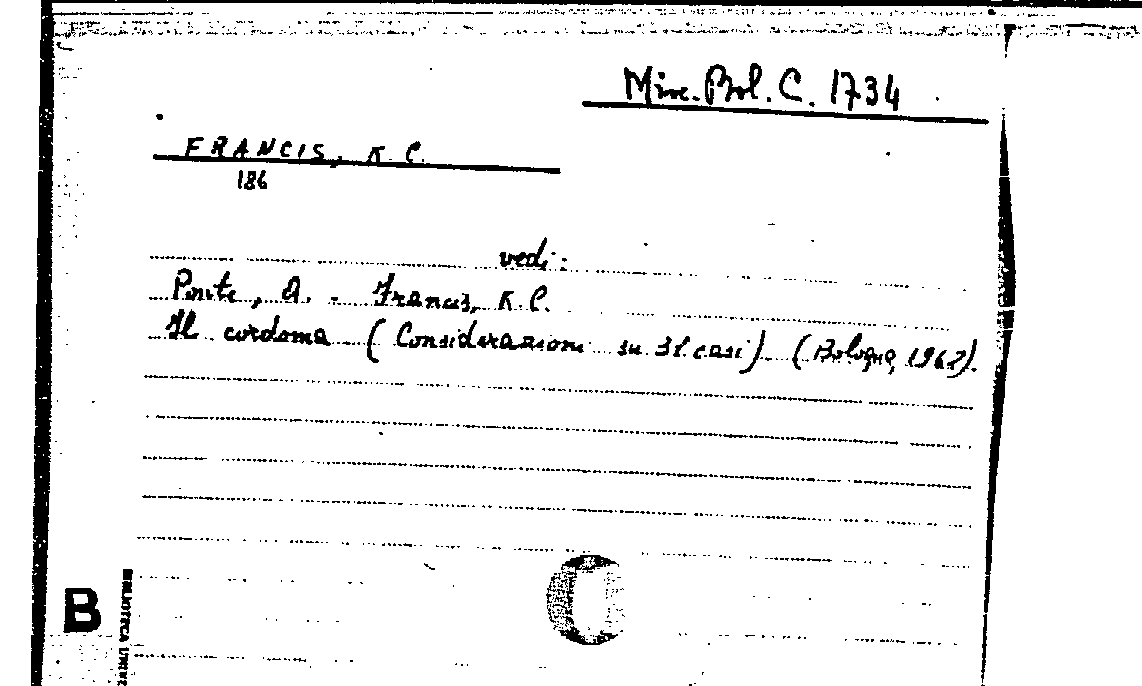 Misc. Bol. C. 1734
FRANCIS, K. C.
186
vedi:
Ponte, A. - Francis, K. C.
Il cordoma (Considerazioni su 31 casi) (Bologna, 1962).
B
BIBLIOTECA